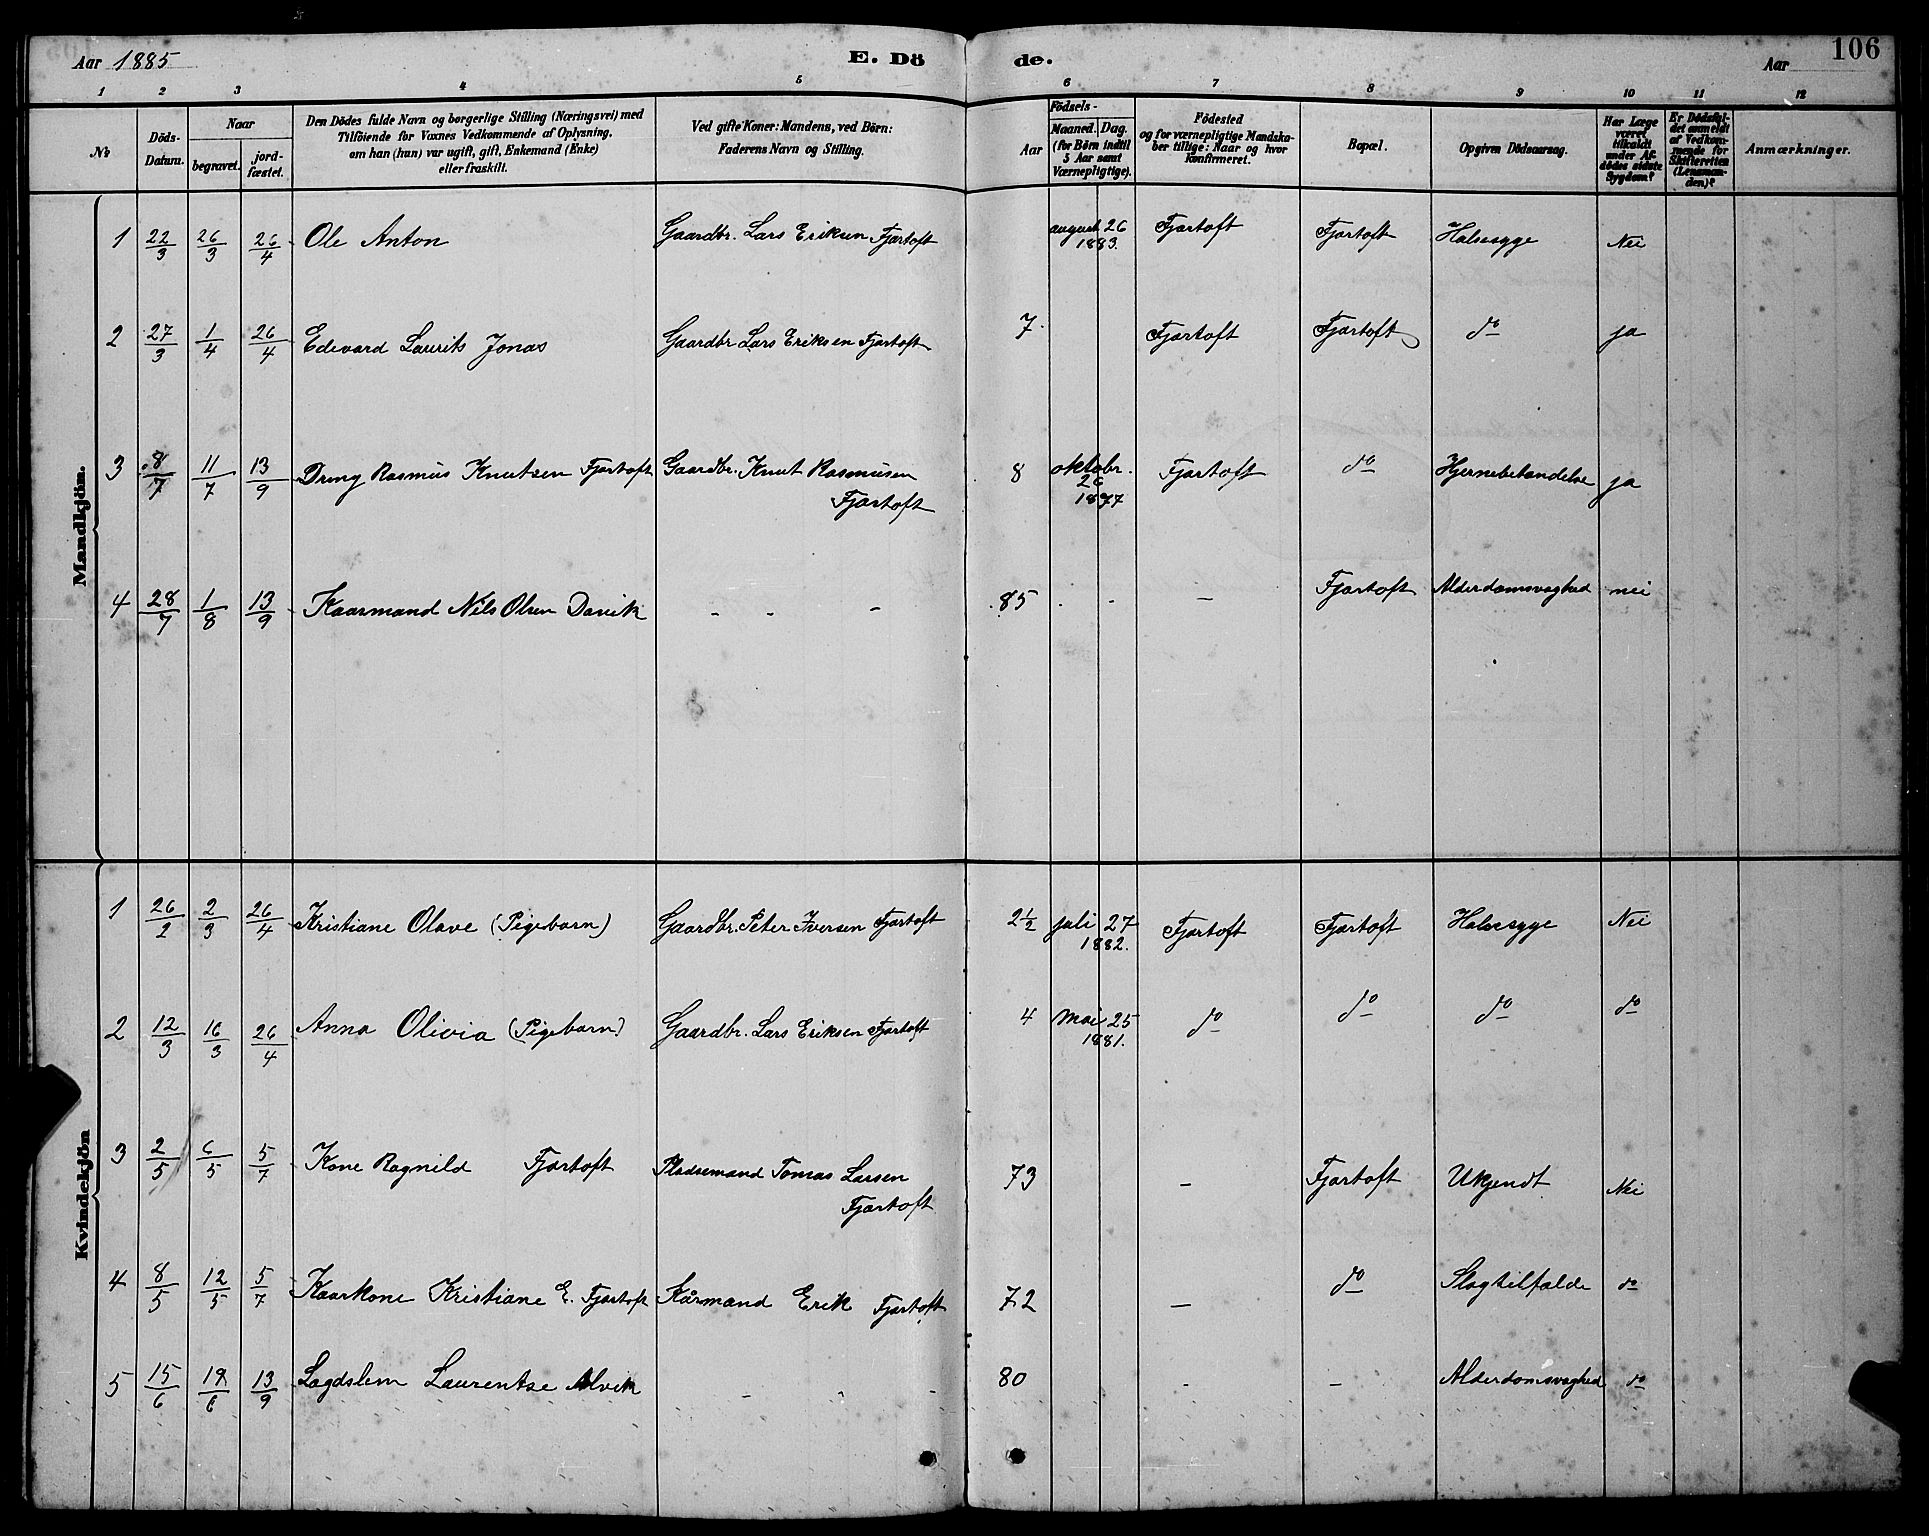 Aar 1885 E. Dö de. Aar 106
1 2 3 4 5 6 7 8 9 10 11 12
No
Döds-Datum.
Naar
begravet.
jord-fæstet.
Den Dödes fulde Navn og borgerlige Stilling (Næringsvei) med
Tilföiende for Voxnes Vedkommende af Oplysning,
om han (hun) var ugift, gift, Enkemand (Enke)
eller fraskilt.
Ved gifte Koner: Mandens, ved Börn:
Faderens Navn og Stilling.
Födsels-
Aar
Maaned. Dag.
(for Börn indtil
5 Aar samt
Værnepligtige).
Födested
og for værnepligtige Mandska-
ber tillige: Naar og hvor
konfirmeret.
Bopæl.
Opgiven Dödsaarsag.
Har Læge
været
tilkaldt
under Af-
dödes sidste
Sygdom?
Er Dödsfal-
det anmeldt
af Vedkom-
mende for
Skifteretten
(Lensman-
den)?
Anmærkninger.
Mandkjön.
1 22/3 26/3 26/4 Ole Anton Gaardbr. Lars Eriksen Fjærtoft august 26 1883. Fjærtoft Fjærtoft Halssyge Nei
2 27/3 1/4 26/4 Edevard Laurits Jonas Gaardbr Lars Eriksen Fjærtoft 7. Fjærtoft Fjærtoft do ja
3 8/7 11/7 13/9 Dreng Rasmus Knutsen Fjærtoft Gaardbr. Knut Rasmusen
Fjærtoft 8 oktobr. 26 1877 Fjærtoft do Hjernebetændelse ja
4 28/7 1/8 13/9 Kaarmand Nils Olsen Davik - - - 85 . - — Fjærtoft Alderdomsvaghed nei
Kvindekjön
1 26/2 2/3 26/4 Kristiane Olave (Pigebarn) Gaardbr. Peter Iversen Fjærtoft 2½ juli 27 1882. Fjærtoft Fjærtoft Halssyge Nei
2 12/3 16/3 26/4 Anna Olivia (Pigebarn) Gaardbr. Lars Eriksen Fjærtoft 4 mai 25 1881. do do do do
3 2/5 6/5 5/7 Kone Ragnild Fjærtoft Pladsemand Tomas Larsen
Fjærtoft 73 - Fjærtoft Ukjendt Nei
4 8/5 12/5 5/7 Kaarkone Kristiane E. Fjærtoft Kårmand Erik Fjærtoft 72 — do Slagtilfælde do
5 15/6 19/6 13/9 Lægdslem Laurentse Alvik - - - 80 - - Alderdomsvaghed do